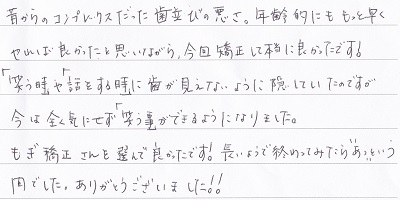 昔からのコンプレックスだった歯並びの悪さ。年齢的にももっと早く
やれば良かったと思いながら、今回矯正して本当に良かったです!
「笑う時」や「話をする時」に歯が見えないように隠していたのですが
今は全く気にせず「笑う事」ができるようになりました。
もぎ矯正さんを選んで良かったです!長いようで終わってみたら“あっ”という
間でした。ありがとうございました!!